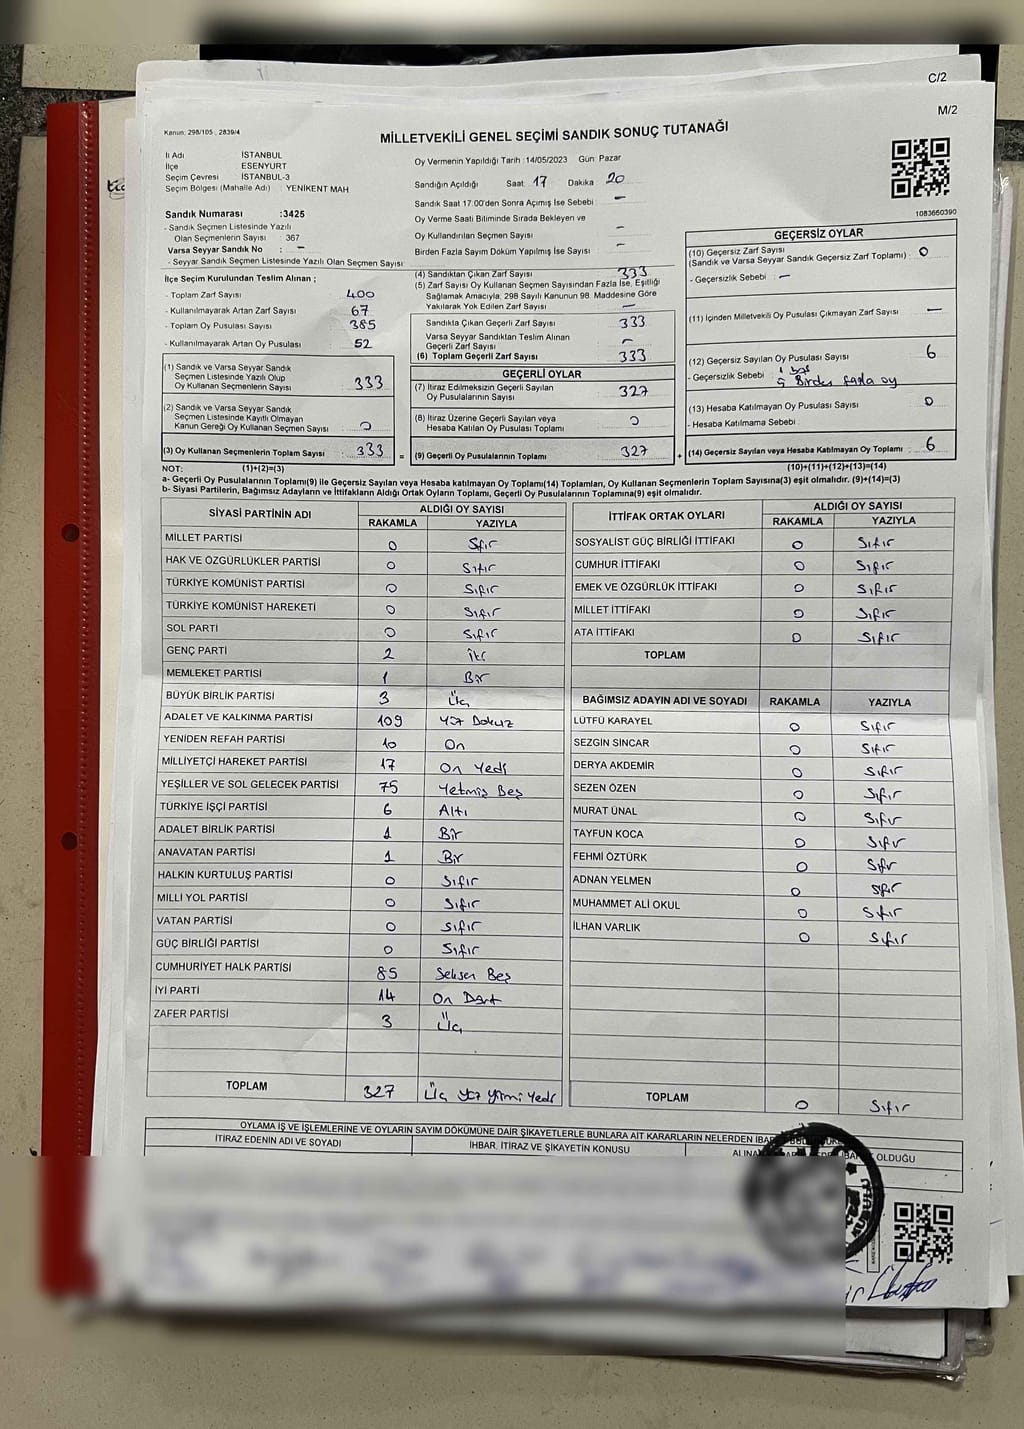 C/2
M/2
Kanun; 298/105 , 2839/4
MİLLETVEKİLİ GENEL SEÇİMİ SANDIK SONUÇ TUTANAĞI
İl Adı İSTANBUL
İlçe ESENYURT
Seçim Çevresi İSTANBUL-3
Seçim Bölgesi (Mahalle Adı) : YENİKENT MAH
Oy Vermenin Yapıldığı Tarih :14/05/2023 Gün Pazar
Sandığın Açıldığı Saat: 17 Dakika 20
Sandık Saat 17:00'den Sonra Açımış İse Sebebi : –
Oy Verme Saati Bitiminde Sırada Bekleyen ve
Oy Kullandırılan Seçmen Sayısı –
Birden Fazla Sayım Döküm Yapılmış İse Sayısı –
1083660390
Sandık Numarası :3425
- Sandık Seçmen Listesinde Yazılı
Olan Seçmenlerin Sayısı : 367
Varsa Seyyar Sandık No : –
- Seyyar Sandık Seçmen Listesinde Yazılı Olan Seçmen Sayısı:
İlçe Seçim Kurulundan Teslim Alınan ;
- Toplam Zarf Sayısı 400
- Kullanılmayarak Artan Zarf Sayısı 67
- Toplam Oy Pusulası Sayısı 385
- Kullanılmayarak Artan Oy Pusulası 52
(1) Sandık ve Varsa Seyyar Sandık
Seçmen Listesinde Yazılı Olup
Oy Kullanan Seçmenlerin Sayısı 333
(2) Sandık ve Varsa Seyyar Sandık
Seçmen Listesinde Kayıtlı Olmayan
Kanun Gereği Oy Kullanan Seçmen Sayısı 0
(3) Oy Kullanan Seçmenlerin Toplam Sayısı 333 =
(4) Sandıktan Çıkan Zarf Sayısı 333
(5) Zarf Sayısı Oy Kullanan Seçmen Sayısından Fazla İse, Eşitliği
Sağlamak Amacıyla; 298 Sayılı Kanunun 98. Maddesine Göre
Yakılarak Yok Edilen Zarf Sayısı –
Sandıkta Çıkan Geçerli Zarf Sayısı 333
Varsa Seyyar Sandıktan Teslim Alınan
Geçerli Zarf Sayısı –
(6) Toplam Geçerli Zarf Sayısı 333
GEÇERLİ OYLAR
(7) İtiraz Edilmeksizin Geçerli Sayılan
Oy Pusulalarının Sayısı 327
(8) İtiraz Üzerine Geçerli Sayılan veya
Hesaba Katılan Oy Pusulası Toplamı 0
(9) Geçerli Oy Pusulalarının Toplamı 327 +
GEÇERSİZ OYLAR
(10) Geçersiz Zarf Sayısı
(Sandık ve Varsa Seyyar Sandık Geçersiz Zarf Toplamı) 0
- Geçersizlik Sebebi : –
(11) İçinden Milletvekili Oy Pusulası Çıkmayan Zarf Sayısı –
(12) Geçersiz Sayılan Oy Pusulası Sayısı 6
- Geçersizlik Sebebi : 1 boş
5 Birden fazla oy
(13) Hesaba Katılmayan Oy Pusulası Sayısı 0
- Hesaba Katılmama Sebebi
(14) Geçersiz Sayılan veya Hesaba Katılmayan Oy Toplamı 6
NOT: (1)+(2)=(3) (10)+(11)+(12)+(13)=(14)
a- Geçerli Oy Pusulalarının Toplamı(9) ile Geçersiz Sayılan veya Hesaba katılmayan Oy Toplamı(14) Toplamları, Oy Kullanan Seçmenlerin Toplam Sayısına(3) eşit olmalıdır. (9)+(14)=(3)
b- Siyasi Partilerin, Bağımsız Adayların ve İttifakların Aldığı Ortak Oyların Toplamı, Geçerli Oy Pusulalarının Toplamına(9) eşit olmalıdır.
SİYASİ PARTİNİN ADI ALDIĞI OY SAYISI
RAKAMLA YAZIYLA
MİLLET PARTİSİ 0 Sfır
HAK VE ÖZGÜRLÜKLER PARTİSİ 0 Sıfır
TÜRKİYE KOMÜNİST PARTİSİ 0 Sıfır
TÜRKİYE KOMÜNİST HAREKETİ 0 Sıfır
SOL PARTİ 0 Sıfır
GENÇ PARTİ 2 İki
MEMLEKET PARTİSİ 1 Bir
BÜYÜK BİRLİK PARTİSİ 3 Üç
ADALET VE KALKINMA PARTİSİ 109 Yüz Dokuz
YENİDEN REFAH PARTİSİ 10 On
MİLLİYETÇİ HAREKET PARTİSİ 17 On Yedi
YEŞİLLER VE SOL GELECEK PARTİSİ 75 Yetmiş Beş
TÜRKİYE İŞÇİ PARTİSİ 6 Altı
ADALET BİRLİK PARTİSİ 1 Bir
ANAVATAN PARTİSİ 1 Bir
HALKIN KURTULUŞ PARTİSİ 0 Sıfır
MİLLİ YOL PARTİSİ 0 Sıfır
VATAN PARTİSİ 0 Sıfır
GÜÇ BİRLİĞİ PARTİSİ 0 Sıfır
CUMHURİYET HALK PARTİSİ 85 Seksen Beş
İYİ PARTİ 14 On Dört
ZAFER PARTİSİ 3 Üç
TOPLAM 327 Üç Yüz Yirmi Yedi
İTTİFAK ORTAK OYLARI ALDIĞI OY SAYISI
RAKAMLA YAZIYLA
SOSYALİST GÜÇ BİRLİĞİ İTTİFAKI 0 Sıfır
CUMHUR İTTİFAKI 0 Sıfır
EMEK VE ÖZGÜRLÜK İTTİFAKI 0 Sıfır
MİLLET İTTİFAKI 0 Sıfır
ATA İTTİFAKI 0 Sıfır
TOPLAM
BAĞIMSIZ ADAYIN ADI VE SOYADI RAKAMLA YAZIYLA
LÜTFÜ KARAYEL 0 Sıfır
SEZGİN SİNCAR 0 Sıfır
DERYA AKDEMİR 0 Sıfır
SEZEN ÖZEN 0 Sıfır
MURAT ÜNAL 0 Sıfır
TAYFUN KOCA 0 Sıfır
FEHMİ ÖZTÜRK 0 Sıfır
ADNAN YELMEN 0 Sıfır
MUHAMMET ALİ OKUL 0 Sıfır
İLHAN VARLIK 0 Sıfır
TOPLAM 0 Sıfır
OYLAMA İŞ VE İŞLEMLERİNE VE OYLARIN SAYIM DÖKÜMÜNE DAİR ŞİKAYETLERLE BUNLARA AİT KARARLARIN NELERDEN
İTİRAZ EDENİN ADI VE SOYADI İHBAR, İTİRAZ VE ŞİKAYETİN KONUSU OLDUĞU